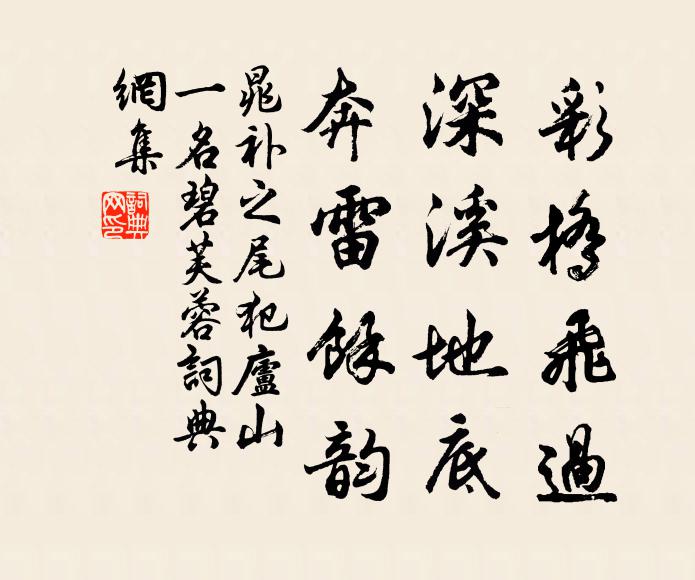 彩橋飛過
深溪地底
奔雷餘韵
晁补之尾犯廬山
一名碧芙蓉詞典
網集
詞典
网印